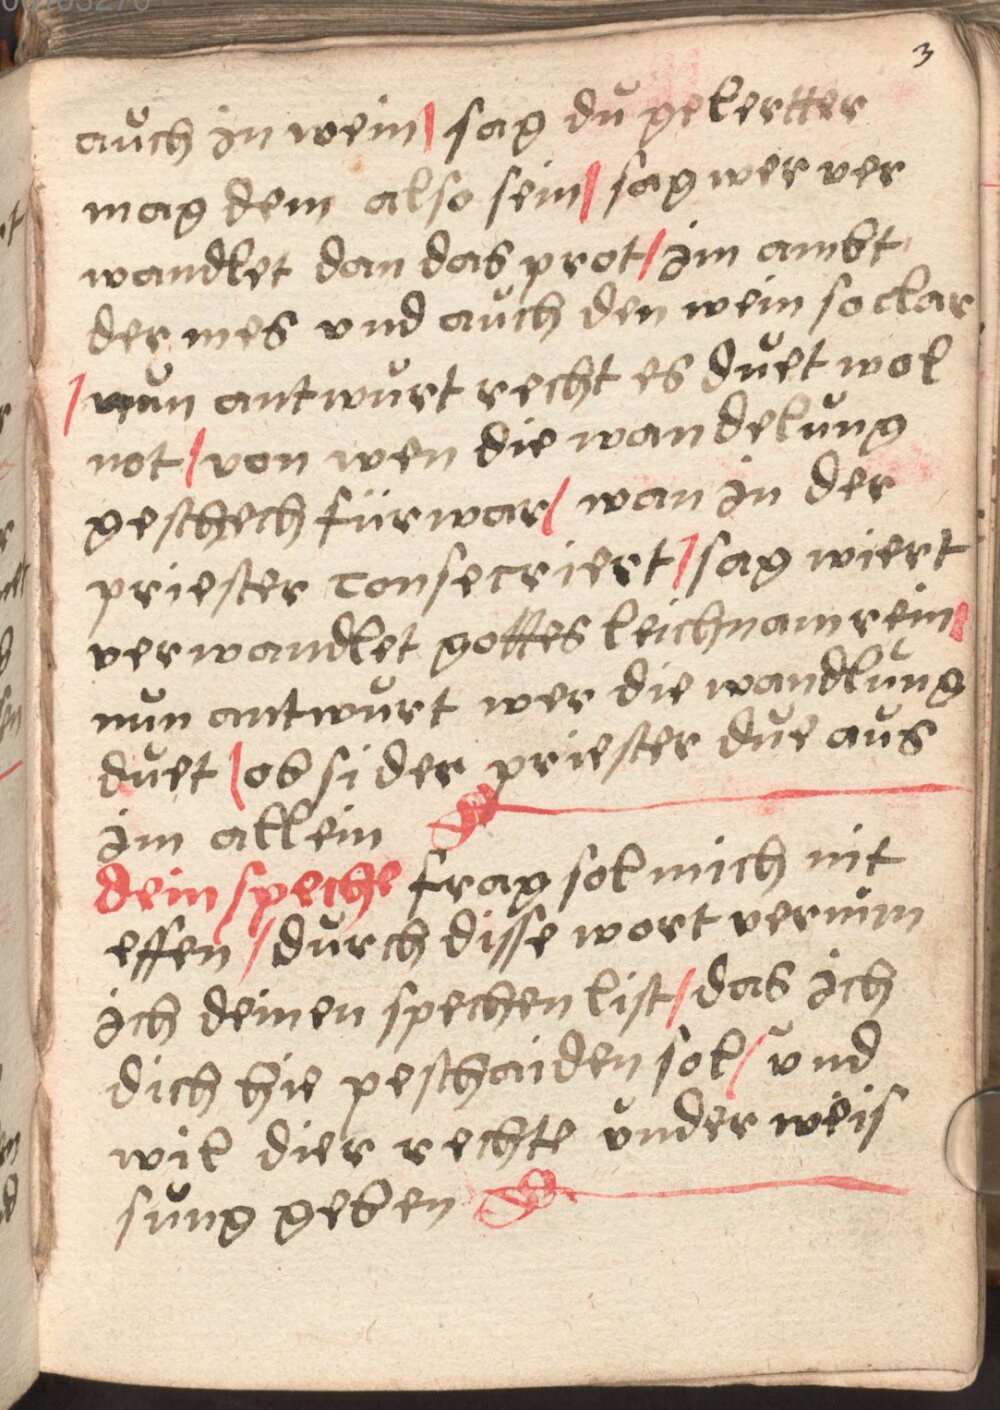 3
auch in wein / sag du gelertter
mag dem also sein / sag wer ver
wandlet dan das prot / im ambt
der mes vnd auch den wein so clar
/ nun antwurt recht es duet wol
not / von wen die wandelung
geschech fürwar / wan in der
priester consecriert / sag wiert
verwandlet gottes leichnam rein /
nun antwurt wer die wandlung
duet / ob si der priester due aus
im allein
dein speche frag sol mich nit
effen / durch disse wort vernim
ich deinen spechen list / das ich
dich hie peschaiden sol / vnd
wil dier rechte vnder weis
sung geben